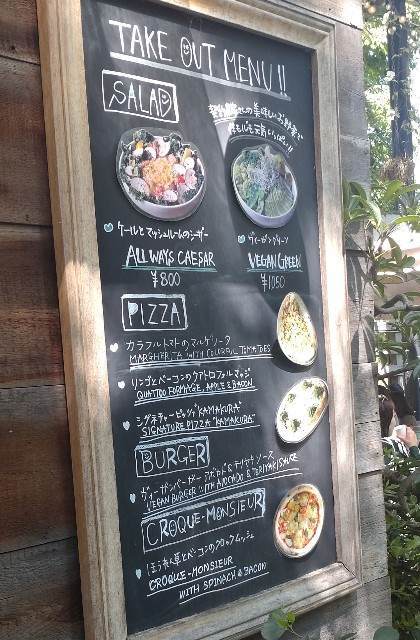 TAKE OUT MENU!!
SALAD
の美味しいお野菜で
ケールとマッシュルームのシーザー
ALLWAYS CAESAR
¥800
ヴィーガングリーン
VEGAN GREEN
¥1050
PIZZA
カラフルトマトのマルゲリータ
MARGHERITA WITH COLORFUL TOMATOES
リンゴとベーコンのクアトロフォルマッジ
QUATTRO FORMAGE, APPLE & BACON
シグネチャーピッツァ "KAMAKURA"
SIGNATURE PIZZA "KAMAKURA"
BURGER
ヴィーガンバーガー アボカド & テリヤキソース
VEGAN BURGER WITH AVOCADO & TERIYAKI SAUCE
CROQUE-MONSIEUR
ほうれん草とベーコンのクロックムッシュ
CROQUE-MONSIEUR
WITH SPINACH & BACON